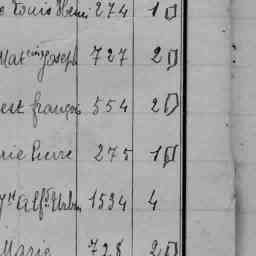 Louis Henri 274 1
Mat^in Joseph 727 2
est françois 554 2
rie Pierre 275 1
Alf^d Urbn 1534 4
Marie 728 2